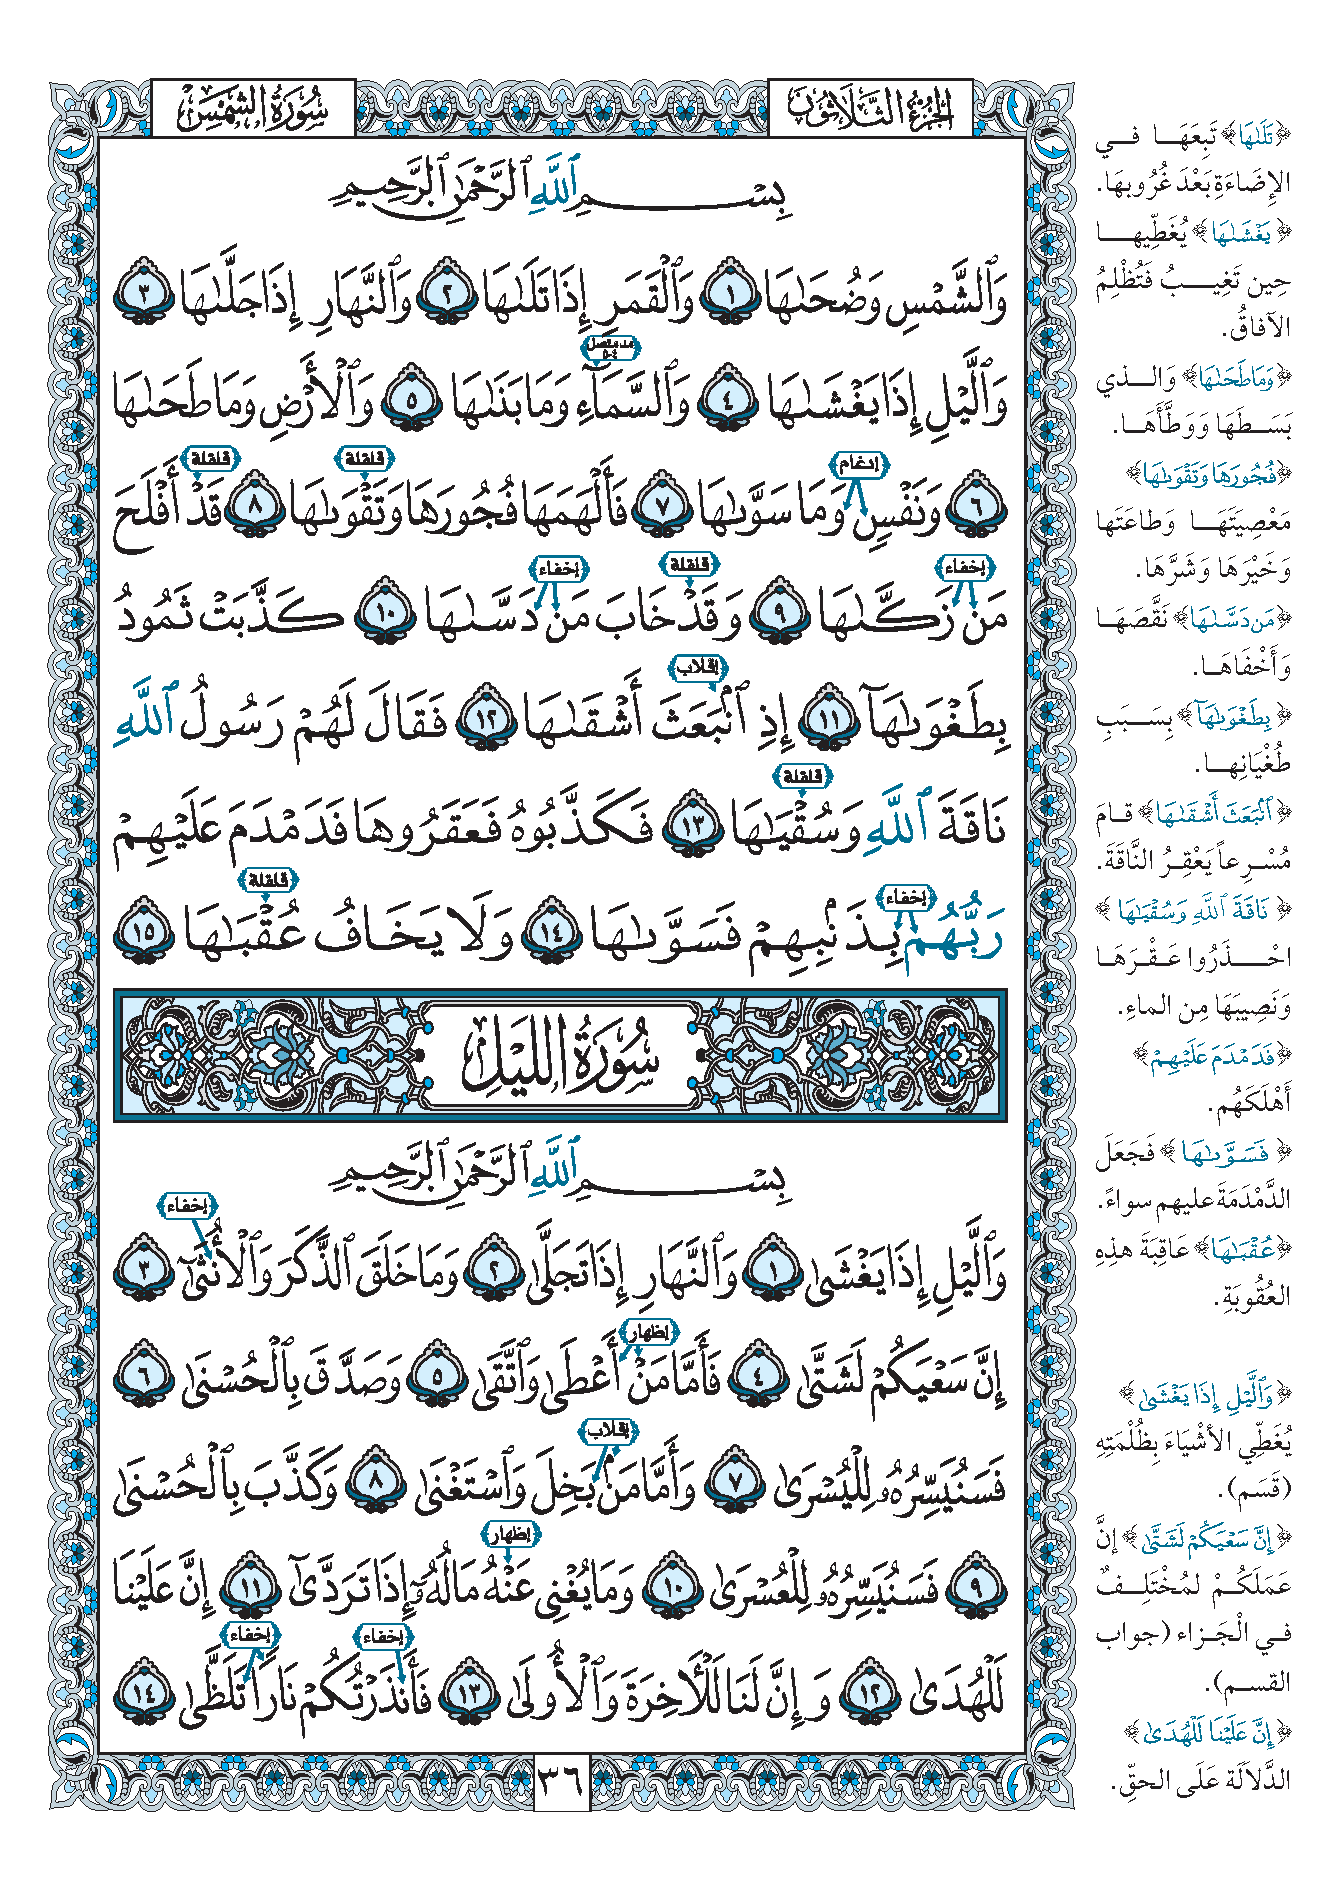 الجزء الثلاثون
سورة الشمس
بِسْمِ ٱللَّهِ ٱلرَّحْمَٰنِ ٱلرَّحِيمِ
وَٱلشَّمْسِ وَضُحَىٰهَا ١ وَٱلْقَمَرِ إِذَا تَلَىٰهَا ٢ وَٱلنَّهَارِ إِذَا جَلَّىٰهَا ٣
مد متصل ٤-٥
وَٱلَّيْلِ إِذَا يَغْشَىٰهَا ٤ وَٱلسَّمَآءِ وَمَا بَنَىٰهَا ٥ وَٱلْأَرْضِ وَمَا طَحَىٰهَا
إدغام قلقلة قلقلة
٦ وَنَفْسٍ وَمَا سَوَّىٰهَا ٧ فَأَلْهَمَهَا فُجُورَهَا وَتَقْوَىٰهَا ٨ قَدْ أَفْلَحَ
إخفاء قلقلة إخفاء
مَن زَكَّىٰهَا ٩ وَقَدْ خَابَ مَن دَسَّىٰهَا ١٠ كَذَّبَتْ ثَمُودُ
إقلاب
بِطَغْوَىٰهَآ ١١ إِذِ ٱنۢبَعَثَ أَشْقَىٰهَا ١٢ فَقَالَ لَهُمْ رَسُولُ ٱللَّهِ
قلقلة
نَاقَةَ ٱللَّهِ وَسُقْيَٰهَا ١٣ فَكَذَّبُوهُ فَعَقَرُوهَا فَدَمْدَمَ عَلَيْهِمْ
إخفاء قلقلة
رَبُّهُم بِذَنۢبِهِمْ فَسَوَّىٰهَا ١٤ وَلَا يَخَافُ عُقْبَٰهَا ١٥
سُورَةُ الليل
بِسْمِ ٱللَّهِ ٱلرَّحْمَٰنِ ٱلرَّحِيمِ
إخفاء
وَٱلَّيْلِ إِذَا يَغْشَىٰ ١ وَٱلنَّهَارِ إِذَا تَجَلَّىٰ ٢ وَمَا خَلَقَ ٱلذَّكَرَ وَٱلْأُنثَىٰٓ ٣
إظهار
إِنَّ سَعْيَكُمْ لَشَتَّىٰ ٤ فَأَمَّا مَنْ أَعْطَىٰ وَٱتَّقَىٰ ٥ وَصَدَّقَ بِٱلْحُسْنَىٰ ٦
إقلاب
فَسَنُيَسِّرُهُۥ لِلْيُسْرَىٰ ٧ وَأَمَّا مَنۢ بَخِلَ وَٱسْتَغْنَىٰ ٨ وَكَذَّبَ بِٱلْحُسْنَىٰ
إظهار
٩ فَسَنُيَسِّرُهُۥ لِلْعُسْرَىٰ ١٠ وَمَا يُغْنِى عَنْهُ مَالُهُۥٓ إِذَا تَرَدَّىٰٓ ١١ إِنَّ عَلَيْنَا
إخفاء إخفاء
لَلْهُدَىٰ ١٢ وَإِنَّ لَنَا لَلْءَاخِرَةَ وَٱلْأُولَىٰ ١٣ فَأَنذَرْتُكُمْ نَارًا تَلَظَّىٰ ١٤
٣٦
﴿تَلَىٰهَا﴾ تَبِعَهَا فـي
الإِضَاءَةِ بَعْدَ غُرُوبِهَا.
﴿يَغْشَىٰهَا﴾ يُغَطِّيهـا
حِينَ تَغِيـبُ فَتُظْلِمُ
الآفاقُ.
﴿وَمَا طَحَىٰهَا﴾ وَالـذي
بَسَـطَهَا وَوَطَّأَهَـا.
﴿فُجُورَهَا وَتَقْوَىٰهَا﴾
مَعْصِيَتَهَـا وَطاعَتَها
وَخَيْرَهَا وَشَرَّهَا.
﴿مَن دَسَّىٰهَا﴾ نَقَّصَهَـا
وَأَخْفَاهَـا.
﴿بِطَغْوَىٰهَآ﴾ بِسَـبَبِ
طُغْيَانِهـا.
﴿ٱنۢبَعَثَ أَشْقَىٰهَا﴾ قـامَ
مُسْـرِعاً يَعْقِـرُ النَّاقَةَ.
﴿نَاقَةَ ٱللَّهِ وَسُقْيَٰهَا﴾
احْـذَرُوا عَـقْـرَهَـا
وَنَصِيبَهَا مِن الماءِ.
﴿فَدَمْدَمَ عَلَيْهِمْ﴾
أَهْلَكَهُم.
﴿فَسَوَّىٰهَا﴾ فَجَعَلَ
الدَّمْدَمَةَ عليهم سواءً.
﴿عُقْبَٰهَا﴾ عَاقِبَةَ هذِهِ
العُقُوبَةِ.
﴿وَٱلَّيْلِ إِذَا يَغْشَىٰ﴾
يُغَطِّي الأشْيَاءَ بِظُلْمَتِهِ
(قَسَم).
﴿إِنَّ سَعْيَكُمْ لَشَتَّىٰ﴾ إنَّ
عَمَلَكُـمْ لمُخْتَلِـفٌ
فـي الْجَـزاء (جواب
القسـم).
﴿إِنَّ عَلَيْنَا لَلْهُدَىٰ﴾
الدَّلالَةَ عَلَى الحقِّ.